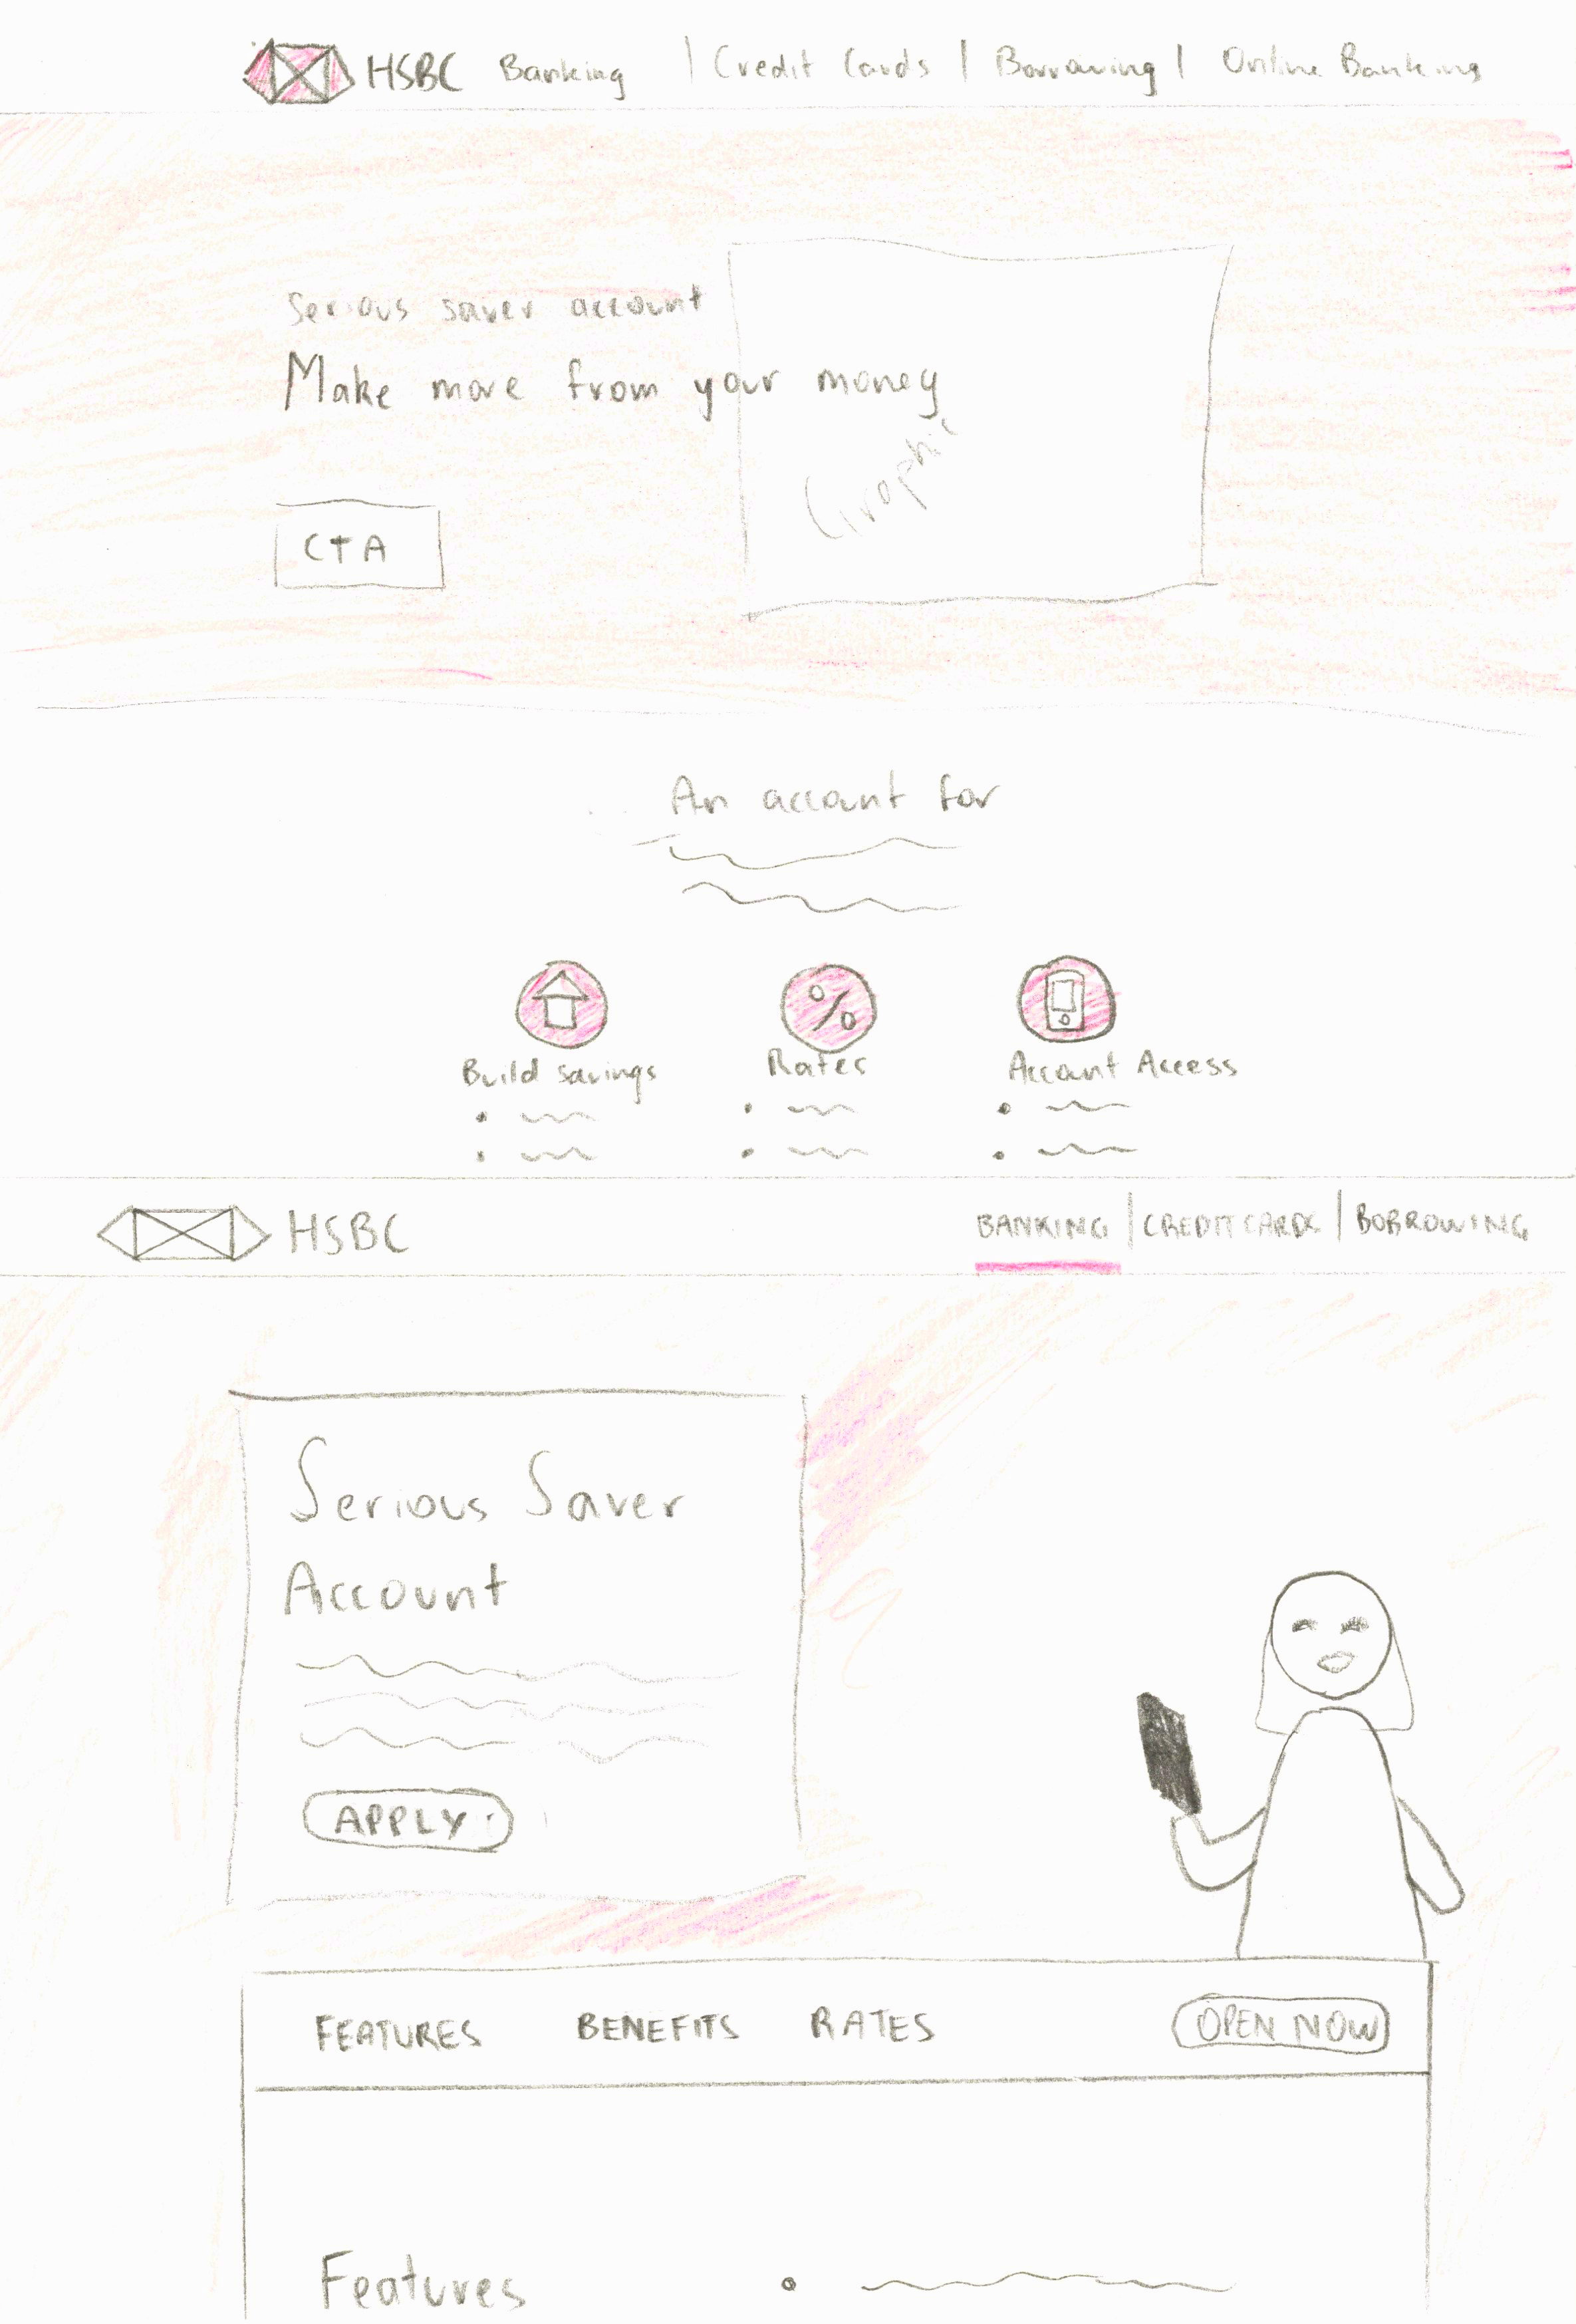 HSBC Banking | Credit Cards | Borrowing | Online Banking
Serious saver account
Make more from your money
Graphic
CTA
An account for
Build savings Rates Account Access
HSBC BANKING | CREDIT CARDS | BORROWING
Serious Saver
Account
APPLY
FEATURES BENEFITS RATES OPEN NOW
Features